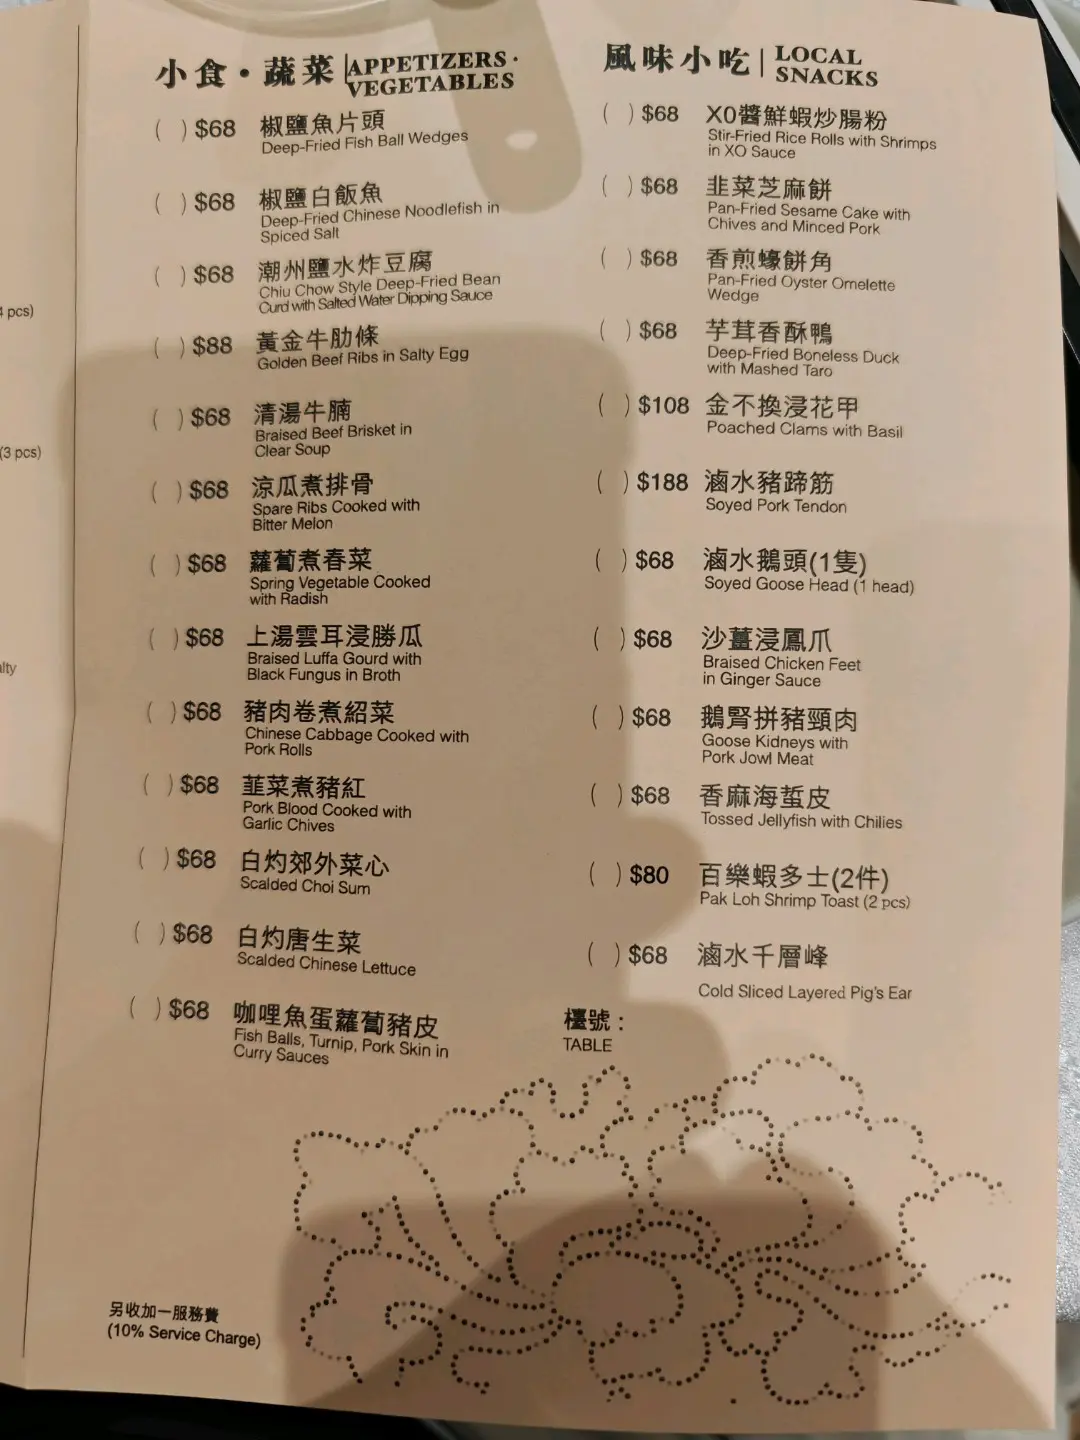 4 pcs)
(3 pcs)
alty
小食·蔬菜 | APPETIZERS ·
VEGETABLES
( ) $68 椒鹽魚片頭
Deep-Fried Fish Ball Wedges
( ) $68 椒鹽白飯魚
Deep-Fried Chinese Noodlefish in
Spiced Salt
( ) $68 潮州鹽水炸豆腐
Chiu Chow Style Deep-Fried Bean
Curd with Salted Water Dipping Sauce
( ) $88 黃金牛肋條
Golden Beef Ribs in Salty Egg
( ) $68 清湯牛腩
Braised Beef Brisket in
Clear Soup
( ) $68 涼瓜煮排骨
Spare Ribs Cooked with
Bitter Melon
( ) $68 蘿蔔煮春菜
Spring Vegetable Cooked
with Radish
( ) $68 上湯雲耳浸勝瓜
Braised Luffa Gourd with
Black Fungus in Broth
( ) $68 豬肉卷煮紹菜
Chinese Cabbage Cooked with
Pork Rolls
( ) $68 韮菜煮豬紅
Pork Blood Cooked with
Garlic Chives
( ) $68 白灼郊外菜心
Scalded Choi Sum
( ) $68 白灼唐生菜
Scalded Chinese Lettuce
( ) $68 咖哩魚蛋蘿蔔豬皮
Fish Balls, Turnip, Pork Skin in
Curry Sauces
另收加一服務費
(10% Service Charge)
風味小吃 | LOCAL
SNACKS
( ) $68 XO醬鮮蝦炒腸粉
Stir-Fried Rice Rolls with Shrimps
in XO Sauce
( ) $68 韭菜芝麻餅
Pan-Fried Sesame Cake with
Chives and Minced Pork
( ) $68 香煎蠔餅角
Pan-Fried Oyster Omelette
Wedge
( ) $68 芋茸香酥鴨
Deep-Fried Boneless Duck
with Mashed Taro
( ) $108 金不換浸花甲
Poached Clams with Basil
( ) $188 滷水豬蹄筋
Soyed Pork Tendon
( ) $68 滷水鵝頭(1隻)
Soyed Goose Head (1 head)
( ) $68 沙薑浸鳳爪
Braised Chicken Feet
in Ginger Sauce
( ) $68 鵝腎拼豬頸肉
Goose Kidneys with
Pork Jowl Meat
( ) $68 香麻海蜇皮
Tossed Jellyfish with Chilies
( ) $80 百樂蝦多士(2件)
Pak Loh Shrimp Toast (2 pcs)
( ) $68 滷水千層峰
Cold Sliced Layered Pig's Ear
檯號 :
TABLE